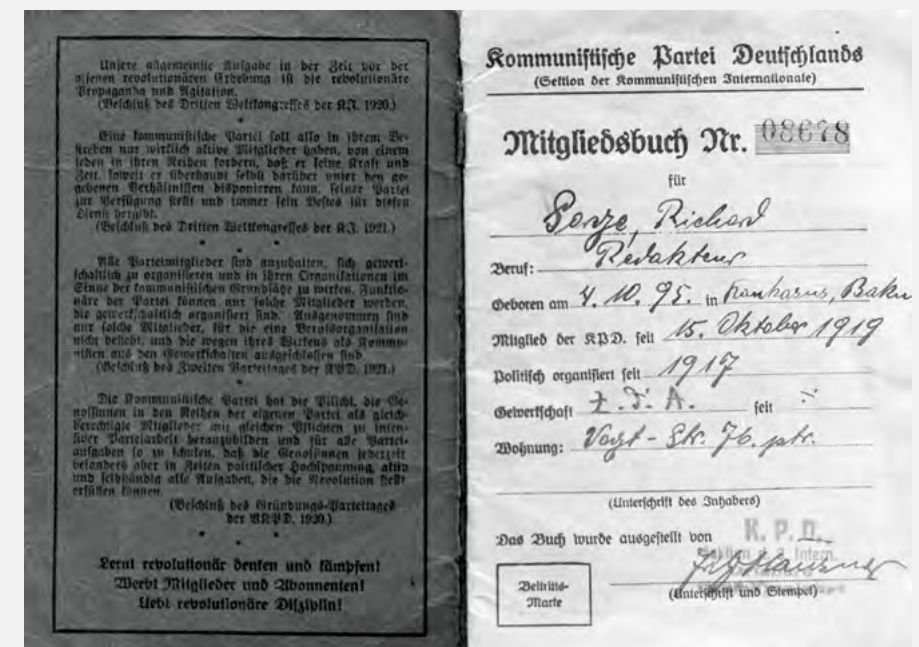 Unsere allgemeinste Aufgabe in der Zeit vor der
offenen revolutionären Erhebung ist die revolutionäre
Propaganda und Agitation.
(Beschluß des Dritten Weltkongresses der K.I. 1920.)
*
Eine kommunistische Partei soll also in ihrem Be-
streben nur wirklich aktive Mitglieder haben, von einem
jeden in ihren Reihen fordern, daß er seine Kraft und
Zeit, soweit er überhaupt selbst darüber unter den ge-
gebenen Verhältnissen disponieren kann, seiner Partei
zur Verfügung stellt und immer sein Bestes für diesen
Dienst hergibt.
(Beschluß des Dritten Weltkongresses der K.I. 1921.)
* * *
Alle Parteimitglieder sind anzuhalten, sich gewerk-
schaftlich zu organisieren und in ihren Organisationen im
Sinne der kommunistischen Grundsätze zu wirken. Funktio-
näre der Partei können nur solche Mitglieder werden,
die gewerkschaftlich organisiert sind. Ausgenommen sind
nur solche Mitglieder, für die eine Berufsorganisation
nicht besteht, und die wegen ihres Wirkens als Kommu-
nisten aus den Gewerkschaften ausgeschlossen sind.
(Beschluß des Zweiten Parteitages der KPD. 1921.)
* * *
Die Kommunistische Partei hat die Pflicht, die Ge-
nossinnen in den Reihen der eigenen Partei als gleich-
berechtigte Mitglieder mit gleichen Pflichten zu inten-
siver Parteiarbeit heranzubilden und für alle Partei-
aufgaben so zu schulen, daß die Genossinnen jederzeit
besonders aber in Zeiten politischer Hochspannung, aktiv
und selbständig alle Aufgaben, die die Revolution stellt
erfüllen können.
(Beschluß des Gründungs-Parteitages
der VKPD. 1920.)
* * *
Lernt revolutionär denken und kämpfen!
Werbt Mitglieder und Abonnenten!
Uebt revolutionäre Disziplin!
Kommunistische Partei Deutschlands
(Sektion der Kommunistischen Internationale)
Mitgliedsbuch Nr. 08678
für
Sorge, Richard
Beruf: Redakteur
Geboren am 4. 10. 95. in Kaukasus, Baku
Mitglied der KPD. seit 15. Oktober 1919
Politisch organisiert seit 1917
Gewerkschaft Z. d. A. seit ./.
Wohnung: Vogt-Str. 76. ptr.
(Unterschrift des Inhabers)
Das Buch wurde ausgestellt von K. P. D.
Sektion d. 3. Intern.
Beitrags-
Marte
(Unterschrift und Stempel)